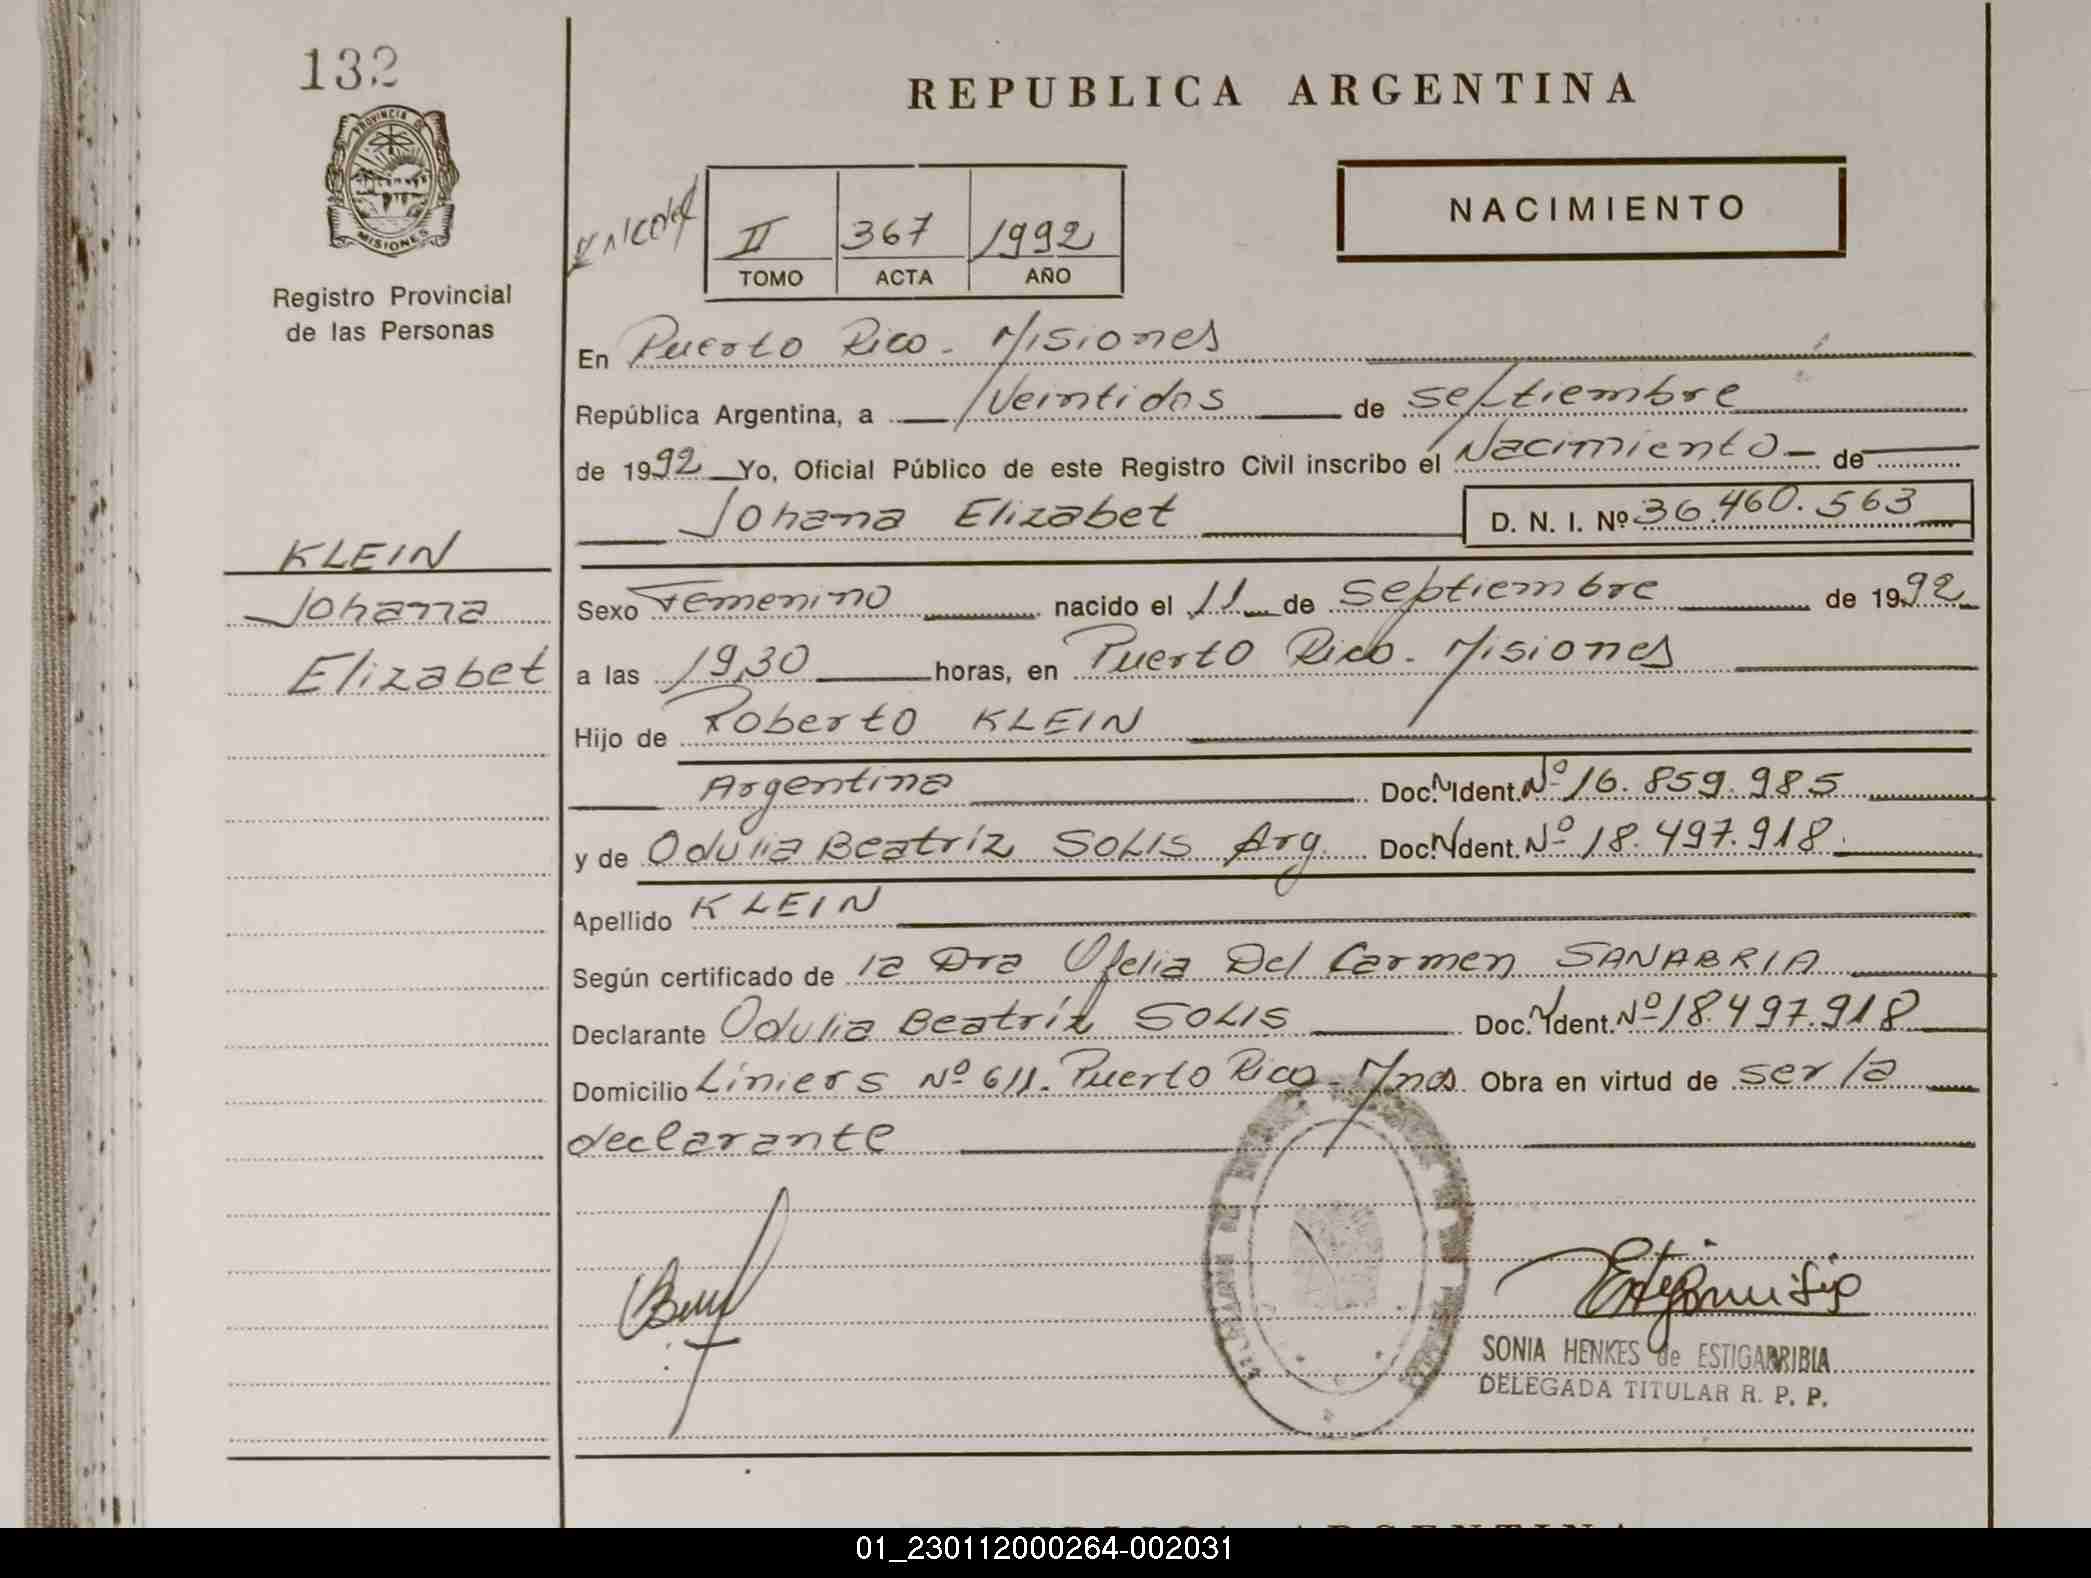 132
PROVINCIA DE
MISIONES
Registro Provincial
de las Personas
REPUBLICA ARGENTINA
NACIMIENTO
II 367 1992
TOMO ACTA AÑO
En Puerto Rico - Misiones
República Argentina, a Veintidos de septiembre
de 1992 Yo, Oficial Público de este Registro Civil inscribo el Nacimiento - de
Johana Elizabet D. N. I. Nº 36.460.563
KLEIN
Johana
Elizabet
Sexo Femenino nacido el 11 de septiembre de 1992
a las 19,30 horas, en Puerto Rico - Misiones
Hijo de Roberto KLEIN
Argentina Doc. Ident. Nº 16.859.985
y de Odulia Beatríz SOLIS Arg. Doc. Ident. Nº 18.497.918
Apellido KLEIN
Según certificado de la Dra Ofelia Del Carmen SANABRIA
Declarante Odulia Beatríz SOLIS Doc. Ident. Nº 18.497.918
Domicilio Liniers Nº 611. Puerto Rico - Mnes Obra en virtud de ser la
declarante
SONIA HENKES de ESTIGARRIBIA
DELEGADA TITULAR R. P. P.
01_230112000264-002031